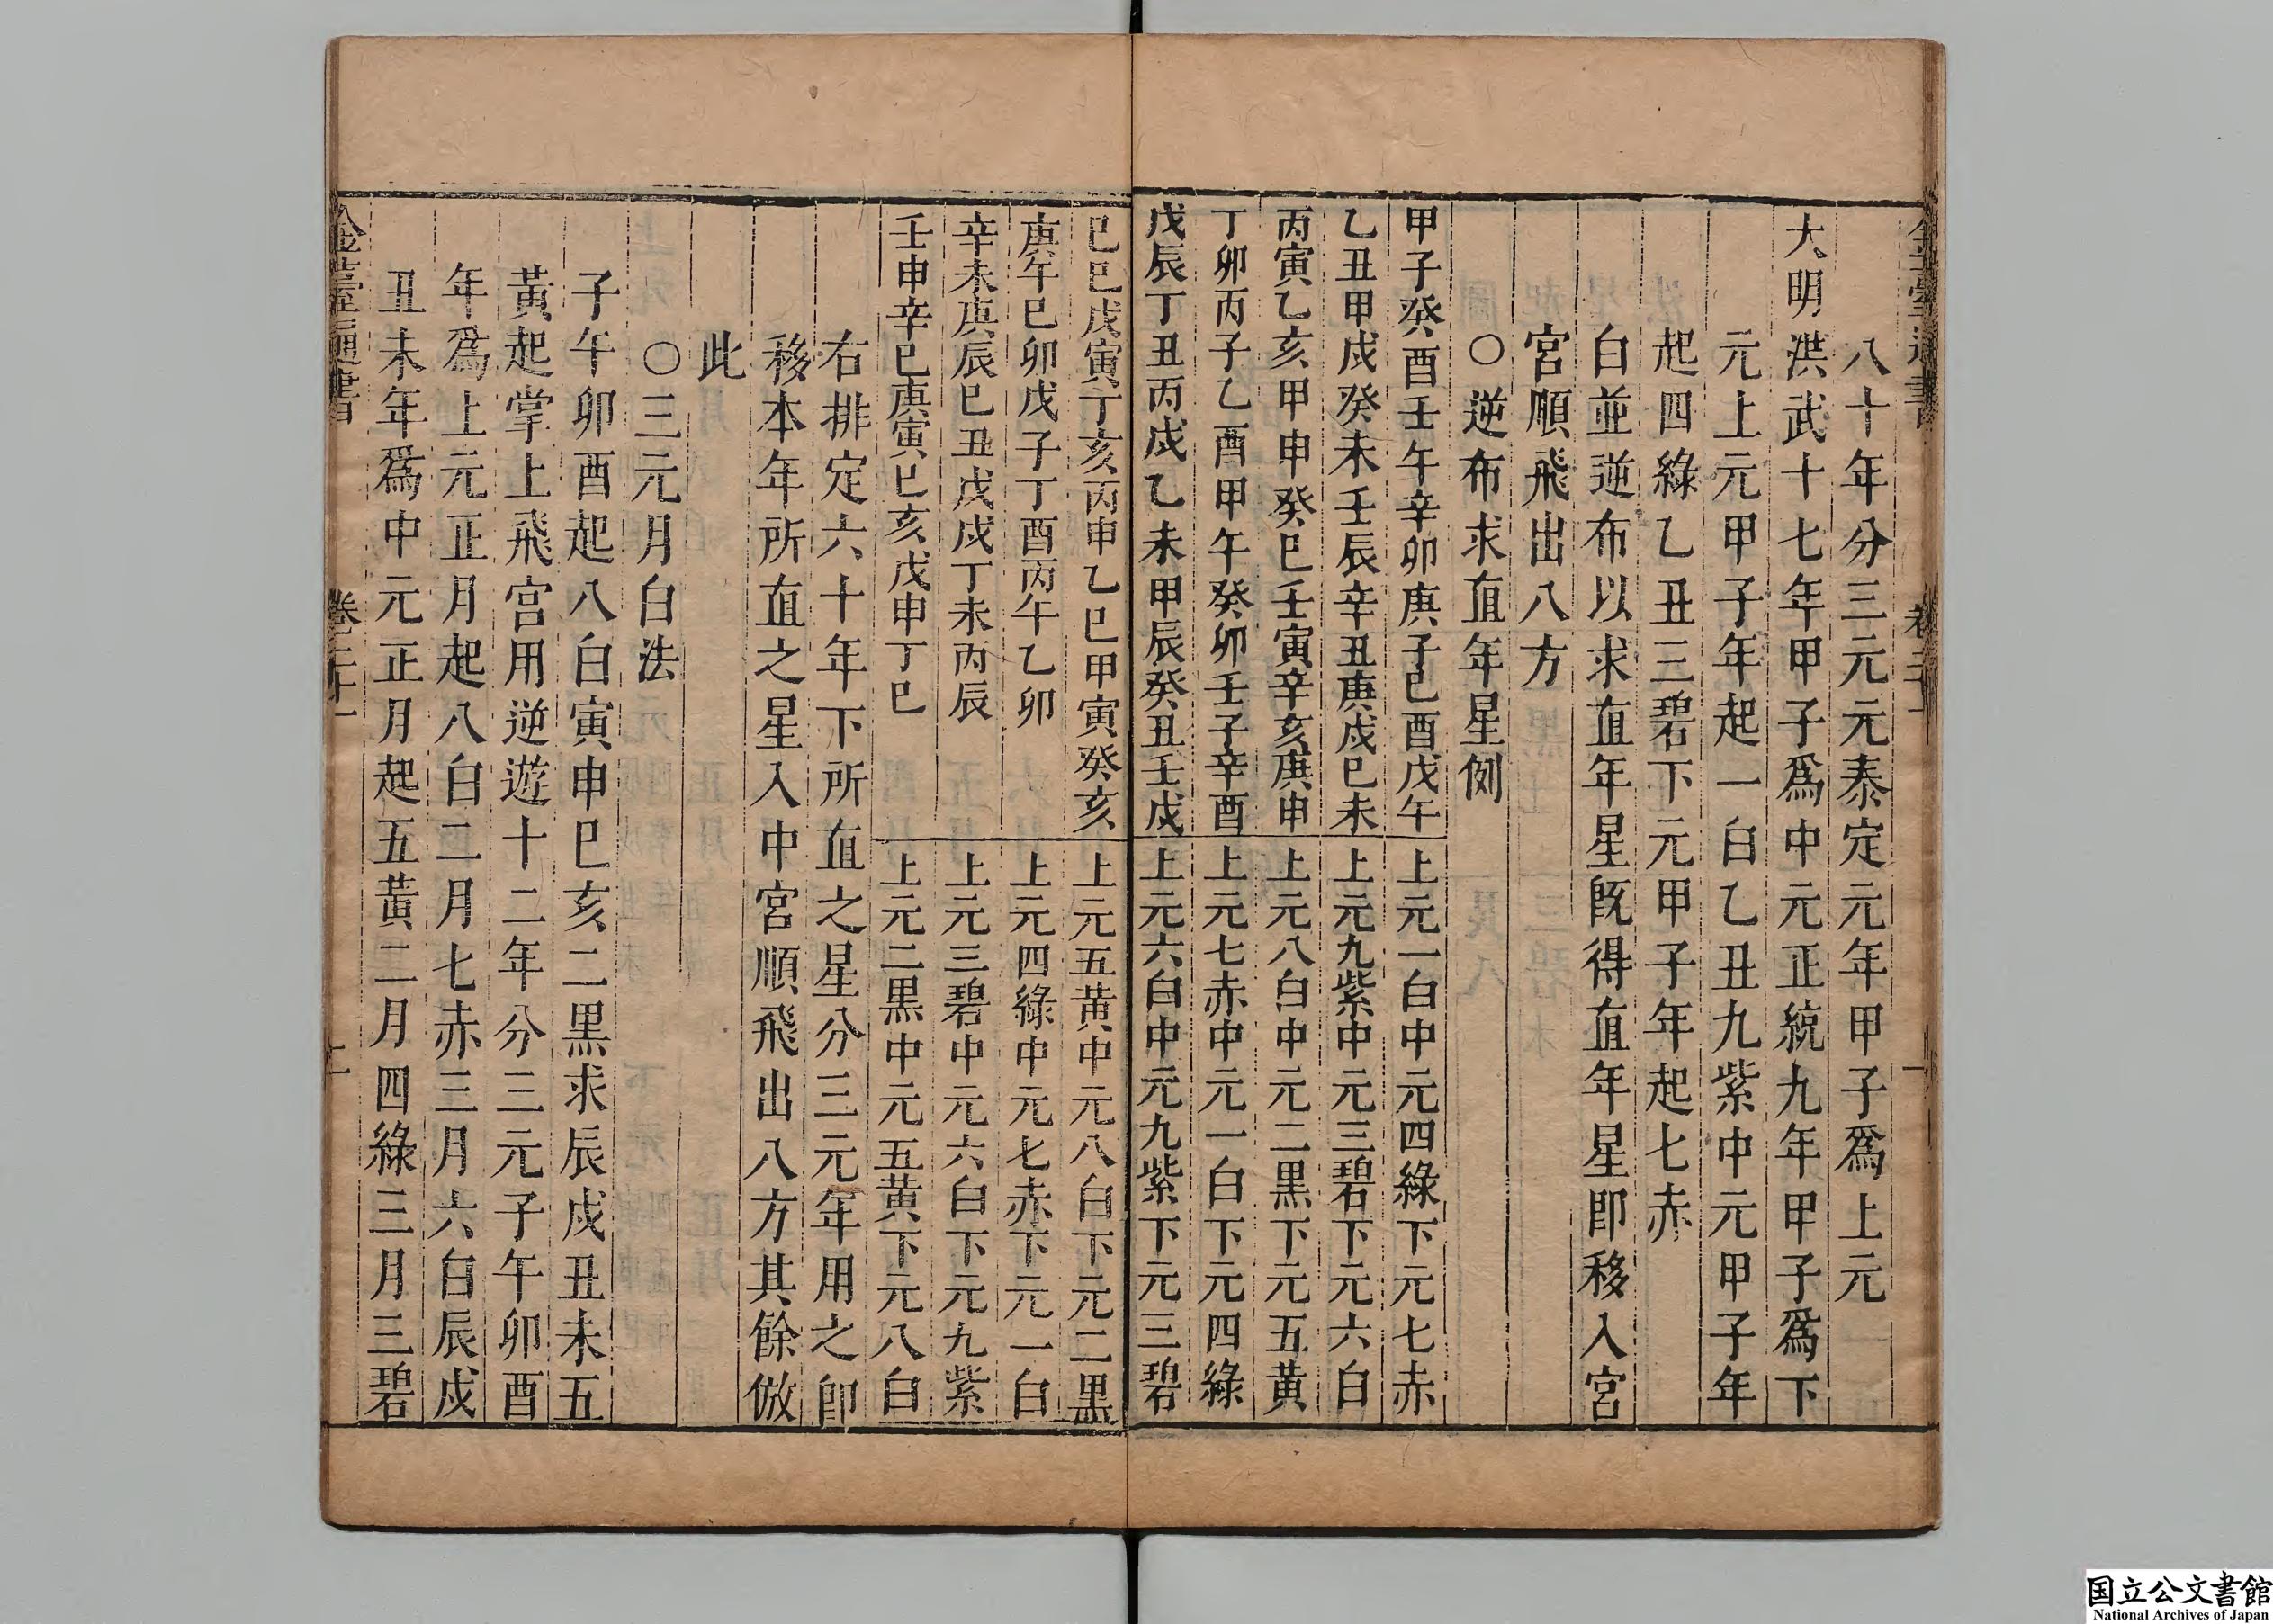 八十年分三元元泰定元年甲子爲上元
大明洪武十七年甲子爲中元正統九年甲子爲下
元上元甲子年起一白乙丑九紫中元甲子年
起四綠乙丑三碧下元甲子年起七赤
白並逆布以求直年星既得直年星即移入宮
宮順飛出八方
○逆布求直年星例
甲子癸酉壬午辛卯庚子己酉戊午 上元一白中元四綠下元七赤
乙丑甲戌癸未壬辰辛丑庚戌己未 上元九紫中元三碧下元六白
丙寅乙亥甲申癸巳壬寅辛亥庚申 上元八白中元二黒下元五黃
丁卯丙子乙酉甲午癸卯壬子辛酉 上元七赤中元一白下元四綠
戊辰丁丑丙戌乙未甲辰癸丑壬戌 上元六白中元九紫下元三碧
己巳戊寅丁亥丙申乙巳甲寅癸亥 上元五黃中元八白下元二黒
庚午己卯戊子丁酉丙午乙卯 上元四綠中元七赤下元一白
辛未庚辰己丑戊戌丁未丙辰 上元三碧中元六白下元九紫
壬申辛巳庚寅己亥戊申丁巳 上元二黒中元五黃下元八白
右排定六十年下所直之星分三元年用之即
移本年所直之星入中宮順飛出八方其餘倣
此
○三元月白法
子午卯酉起八白寅申巳亥二黒求辰戌丑未五
黃起掌上飛宮用逆遊十二年分三元子午卯酉
年爲上元正月起八白二月七赤三月六白辰戌
丑未年爲中元正月起五黃二月四綠三月三碧
金臺通書 卷二十一 二
国立公文書館
National Archives of Japan